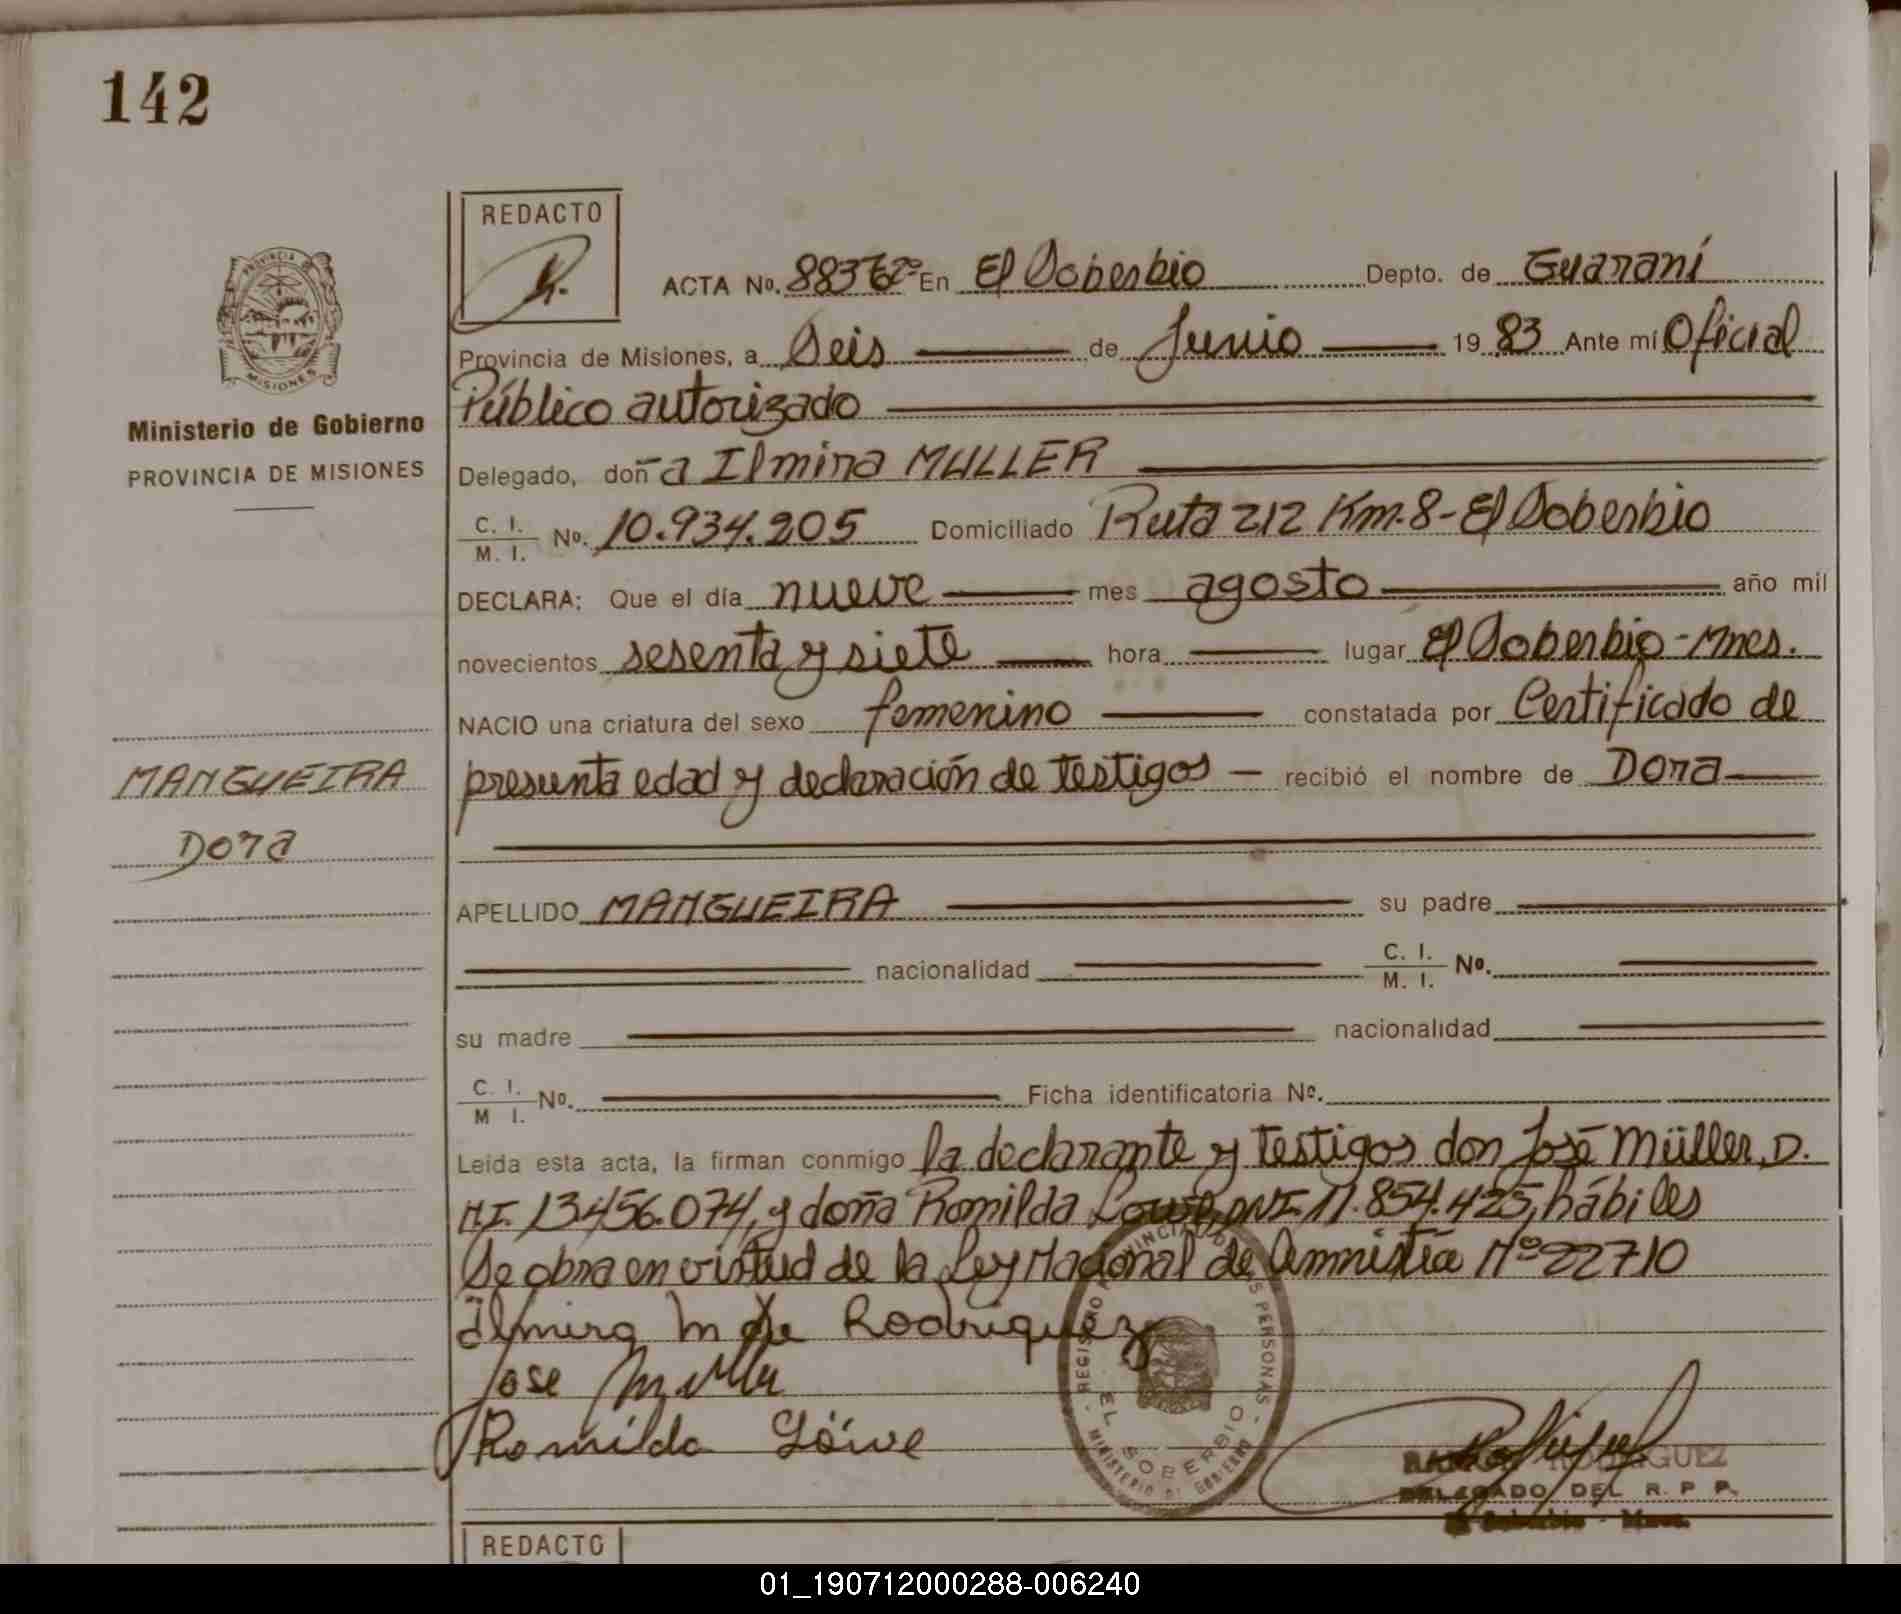 142
REDACTO
ACTA No. 88376 En El Soberbio Depto. de Guaraní
Provincia de Misiones, a Seis de Junio 1983 Ante mí Oficial
Público autorizado
Ministerio de Gobierno
PROVINCIA DE MISIONES
Delegado, doña Ilmira MULLER
C. I. / M. I. No. 10.934.205 Domiciliado Ruta 212 Km. 8 - El Soberbio
DECLARA: Que el día nueve mes agosto año mil
novecientos sesenta y siete hora lugar El Soberbio - Mnes.
NACIO una criatura del sexo femenino constatada por Certificado de
presunta edad y declaración de testigos recibió el nombre de Dora
MANGUEIRA
Dora
APELLIDO MANGUEIRA su padre
nacionalidad C. I. / M. I. No.
su madre nacionalidad
C. I. / M I. No. Ficha identificatoria No.
Leída esta acta, la firman conmigo la declarante y testigos don José Müller, D.
N.I. 13.456.074, y doña Romilda Löwe, DNI. 11.854.425, hábiles
Se obra en virtud de la Ley Nacional de Amnistía Nº 22710
Ilmira M de Rodriguez
Jose Muller
Romilda Löwe
REGISTRO PROVINCIAL DE LAS PERSONAS
EL SOBERBIO
MINISTERIO DE GOBIERNO
RAMON RODRIGUEZ
DELEGADO DEL R. P. P.
El Soberbio - Mnes.
REDACTO
01_190712000288-006240